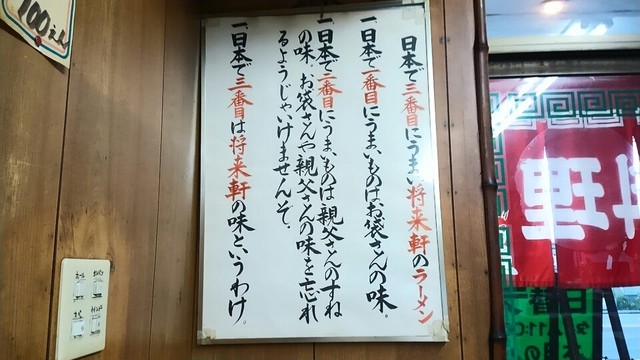 日本で三番目にうまい将来軒のラーメン
一日本で一番目にうまいものはお袋さんの味。
一日本で二番目にうまいものは親父さんのすね
の味。お袋さんや親父さんの味を忘れ
るようじゃいけませんぞ。
一日本で三番目は将来軒の味というわけ。
100えん